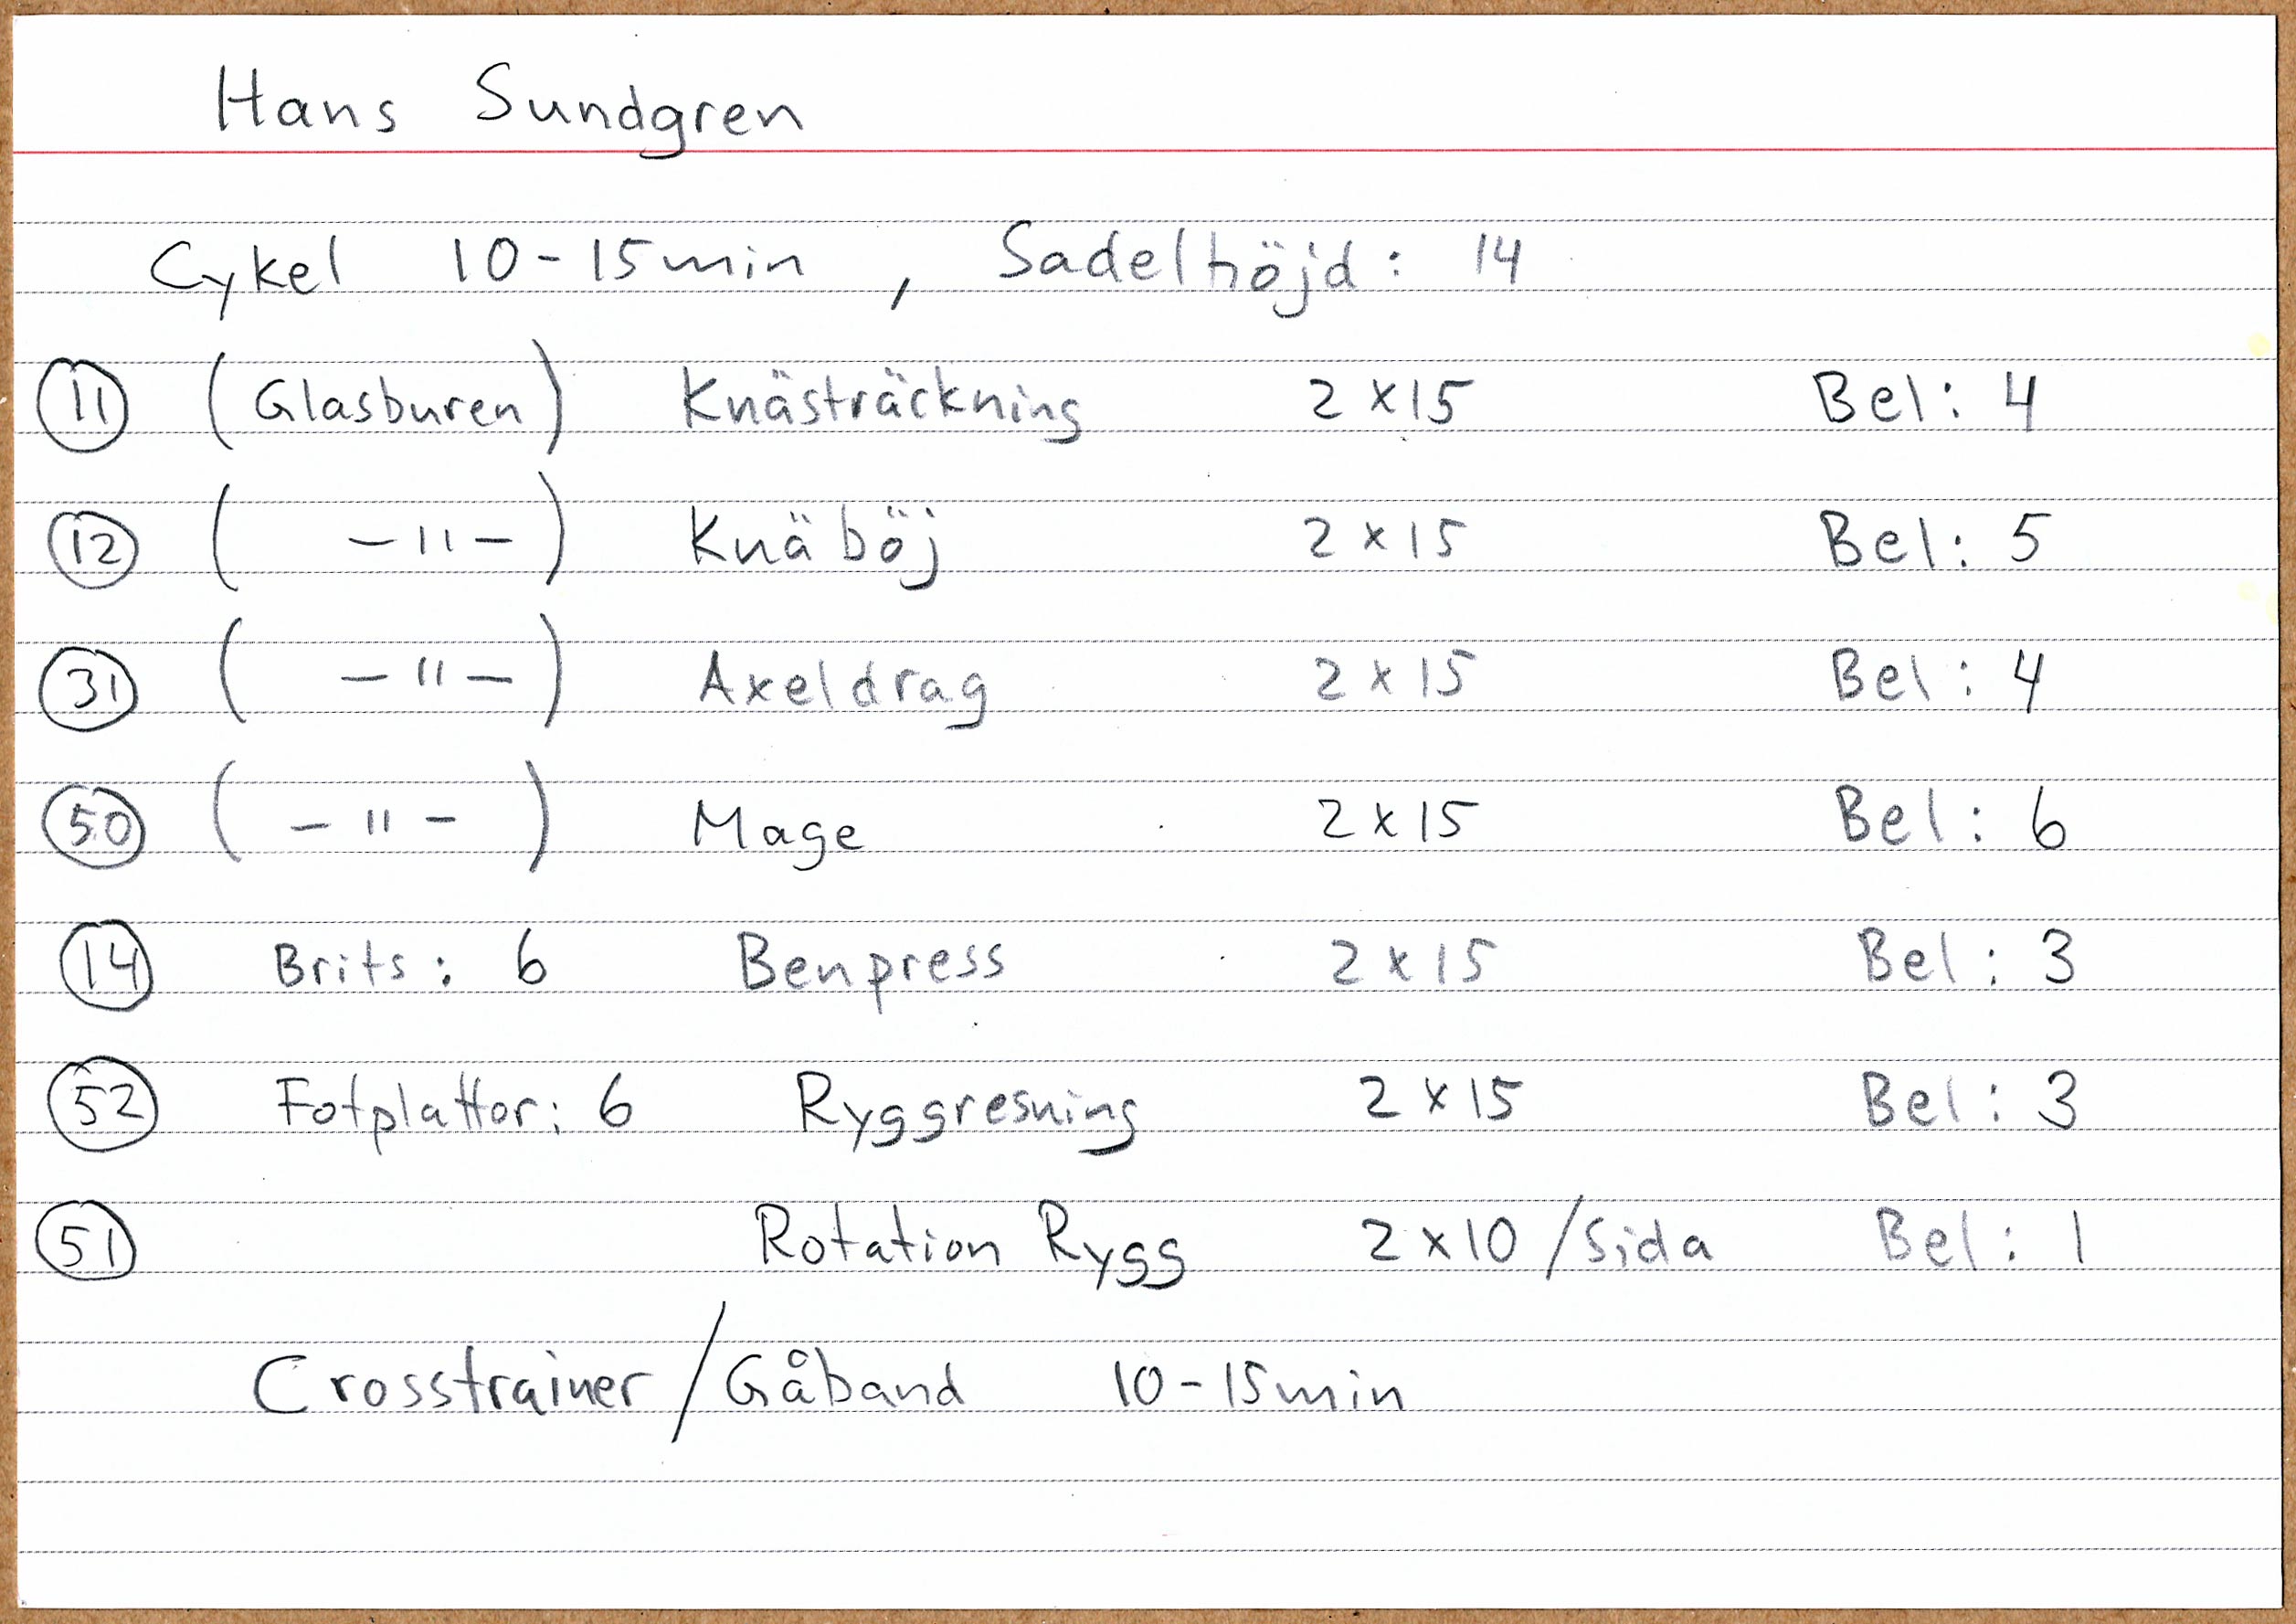 Hans Sundgren
Cykel 10-15min, Sadelhöjd: 14
11 (Glasburen) Knästräckning 2x15 Bel: 4
12 ( -11- ) Knäböj 2x15 Bel: 5
31 ( -11- ) Axeldrag 2x15 Bel: 4
50 ( -11- ) Mage 2x15 Bel: 6
14 Brits: 6 Benpress 2x15 Bel: 3
52 Fotplattor: 6 Ryggresning 2x15 Bel: 3
51 Rotation Rygg 2x10/sida Bel: 1
Crosstrainer/Gåband 10-15min